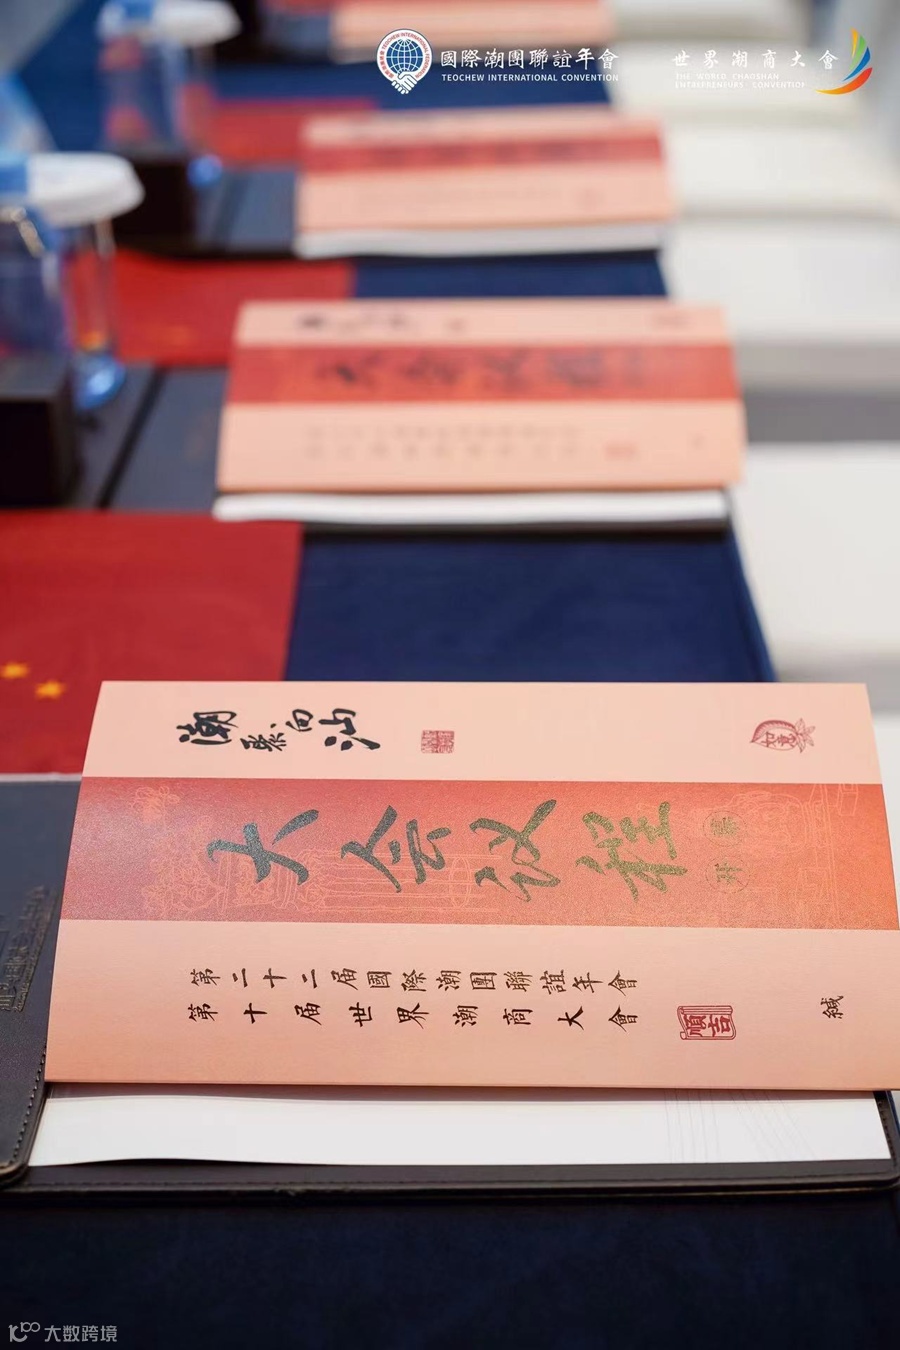 國際潮團聯誼年會
TEOCHEW INTERNATIONAL CONVENTION
世界潮商大會
THE WORLD CHAOSHAN
ENTREPRENEURS' CONVENTION
潮聚向汕
大会议程
第二十二届國際潮團聯誼年會
第十届世界潮商大會
順吉
緘
大数跨境